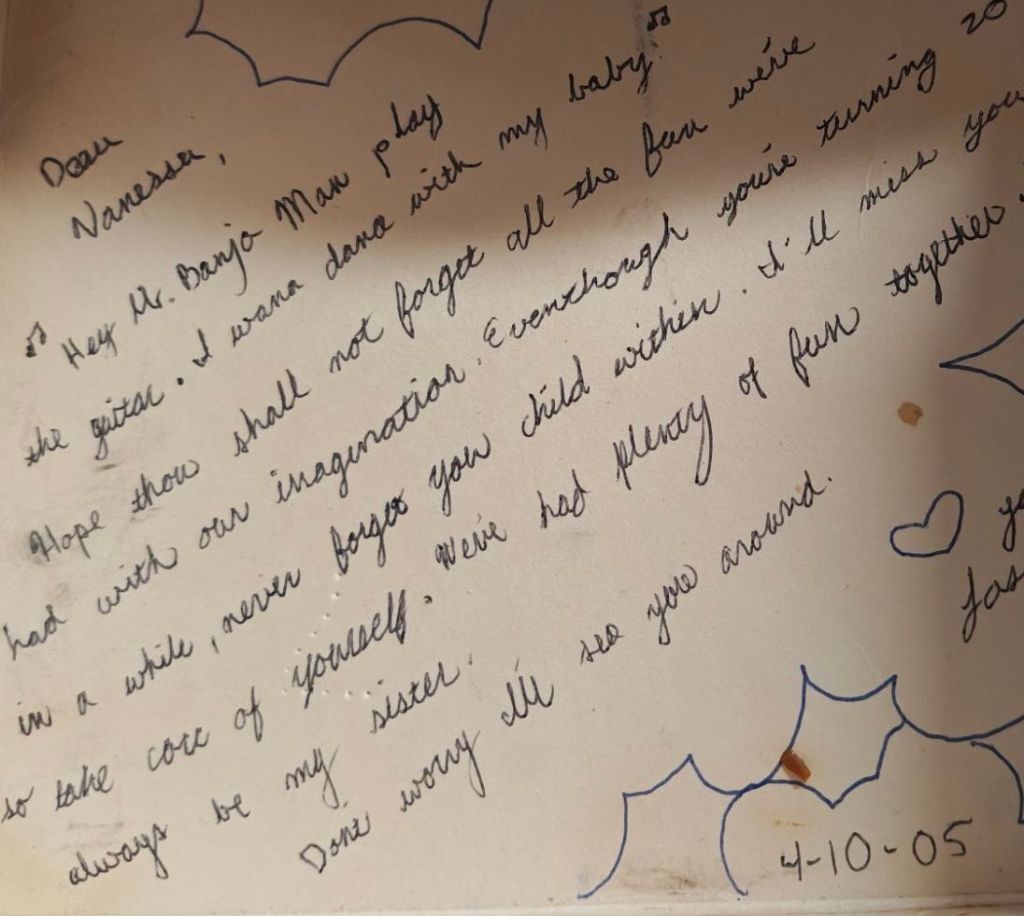 Dear
Vanessa,
"Hey Mr. Banjo Man play
the guitar. I wana dance with my baby."
Hope thou shall not forget all the fun we've
had with our imagination. Eventhough you're turning 20
in a while, never forget you child within. I'll miss you
so take care of yourself. We've had plenty of fun together.
always be my sister.
Dont worry I'll see you around.
4-10-05